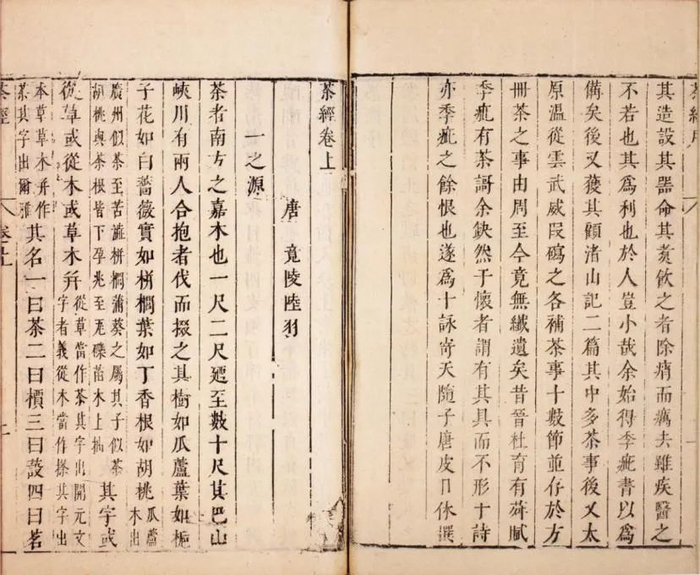 茶經序
其造設其器命其煑飲之者除痟而癘去雖疾醫之
不若也其爲利也於人豈小哉余始得季疵書以爲
備矣後又獲其顧渚山記二篇其中多茶事後又太
原溫從雲武威段碣之各補茶事十數節並存於方
冊茶之事由周至今竟無纖遺矣昔晉杜育有荈賦
季疵有茶謌余缺然于懷者謂有其具而不形十詩
亦季疵之餘恨也遂爲十詠寄天隨子唐皮日休撰
茶經卷上
唐 竟陵陸羽
一之源
茶者南方之嘉木也一尺二尺廼至數十尺其巴山
峽川有兩人合抱者伐而掇之其樹如瓜蘆葉如梔
子花如白薔薇實如栟櫚葉如丁香根如胡桃瓜蘆木出
廣州似茶至苦澁栟櫚蒲葵之屬其子似茶胡桃與茶根皆下孕兆至瓦礫苗木上抽其字或
從草或從木或草木并從草當作茶其字出開元文字者義從木當作搽其字出
本草草木并作荼其字出爾雅其名一曰茶二曰檟三曰蔎四曰茗
茶經 卷上